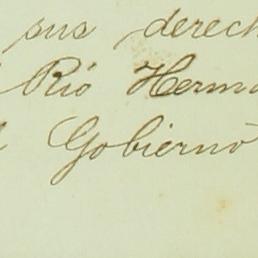 sus derech
Rió Herma
Gobiernó